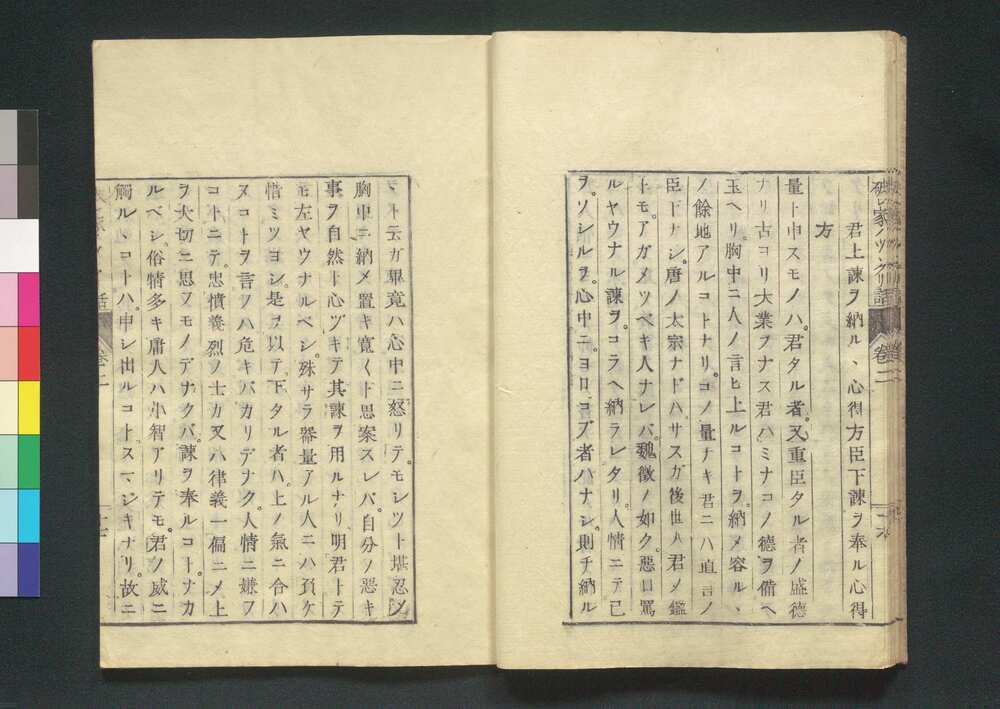 破レ家ノツヾクリ話
卷二
君上諫ヲ納ルヽ心得方臣下諫ヲ奉ル心得
方
量ト申スモノハ。君タル者。又重臣タル者ノ盛德
ナリ古ヨリ大業ヲナス君ハミナコノ德ヲ備ヘ
玉ヘリ。胸中ニ人ノ言ヒ上ルコトヲ。納メ容ルヽ
ノ餘地アルコトナリ。コノ量ナキ君ニハ直言ノ
臣下ナシ。唐ノ太宗ナドハ。サスガ後世人君ノ鑑
トモ。アガメツベキ人ナレバ。魏徵ノ如ク。惡口罵
ルヤウナル諫ヲ。コラヘ納ラレタリ。人情ニテ己
ヲ。ソシルヲ。心中ニ。ヨロコブ者ハナシ。則チ納ル
ヽト云ガ畢竟ハ心中ニ怒リテ。モレツト堪忍ノ
胸中ニ納メ置キ寬々ト思案スレバ。自分ノ惡キ
事ヲ自然ト心ヅキテ其諫ヲ用ルナリ。明君トテ
モ。左ヤウナルベシ。殊サラ器量アル人ニハ負ケ
惜ミツヨシ。是ヲ以テ。下タル者ハ。上ノ氣ニ合ハ
ヌコトヲ言フハ危キバカリデナク。人情ニ嫌フ
コトニテ。忠憤義烈ノ士カ又ハ律義一偏ニメ上
ヲ大切ニ思フモノデナクバ。諫ヲ奉ルコト。ナカ
ルベシ。俗情多キ庸人ハ小智アリテモ。君ノ威ニ
觸ルヽコトハ。申シ出ルコトスマジキナリ。故ニ
話
卷二